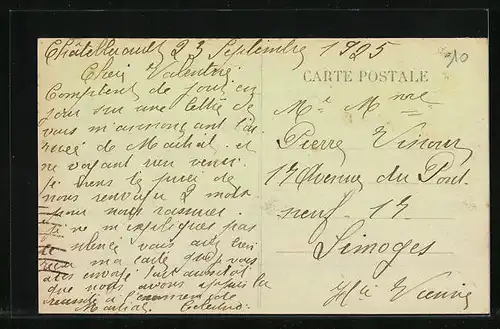 Châtellerault 23 Septembre 1925
Cher Valentin
Comptent de jour en
jour sur une lettre de
vous m'annonçant l'ar
rivée de Martial et
ne voyant rien venir
je viens te prier de
nous renvoyer 2 mots
pour nous rassurer.
je ne m'expliques pas
ce silence vous avez
ma carte que je vous
ai envoyé
que nous avons
réussite à l'examen de
Martial.
CARTE POSTALE
Mr Mme
Pierre
17 Avenue du Pont
neuf 17
Limoges
Hte Vienne